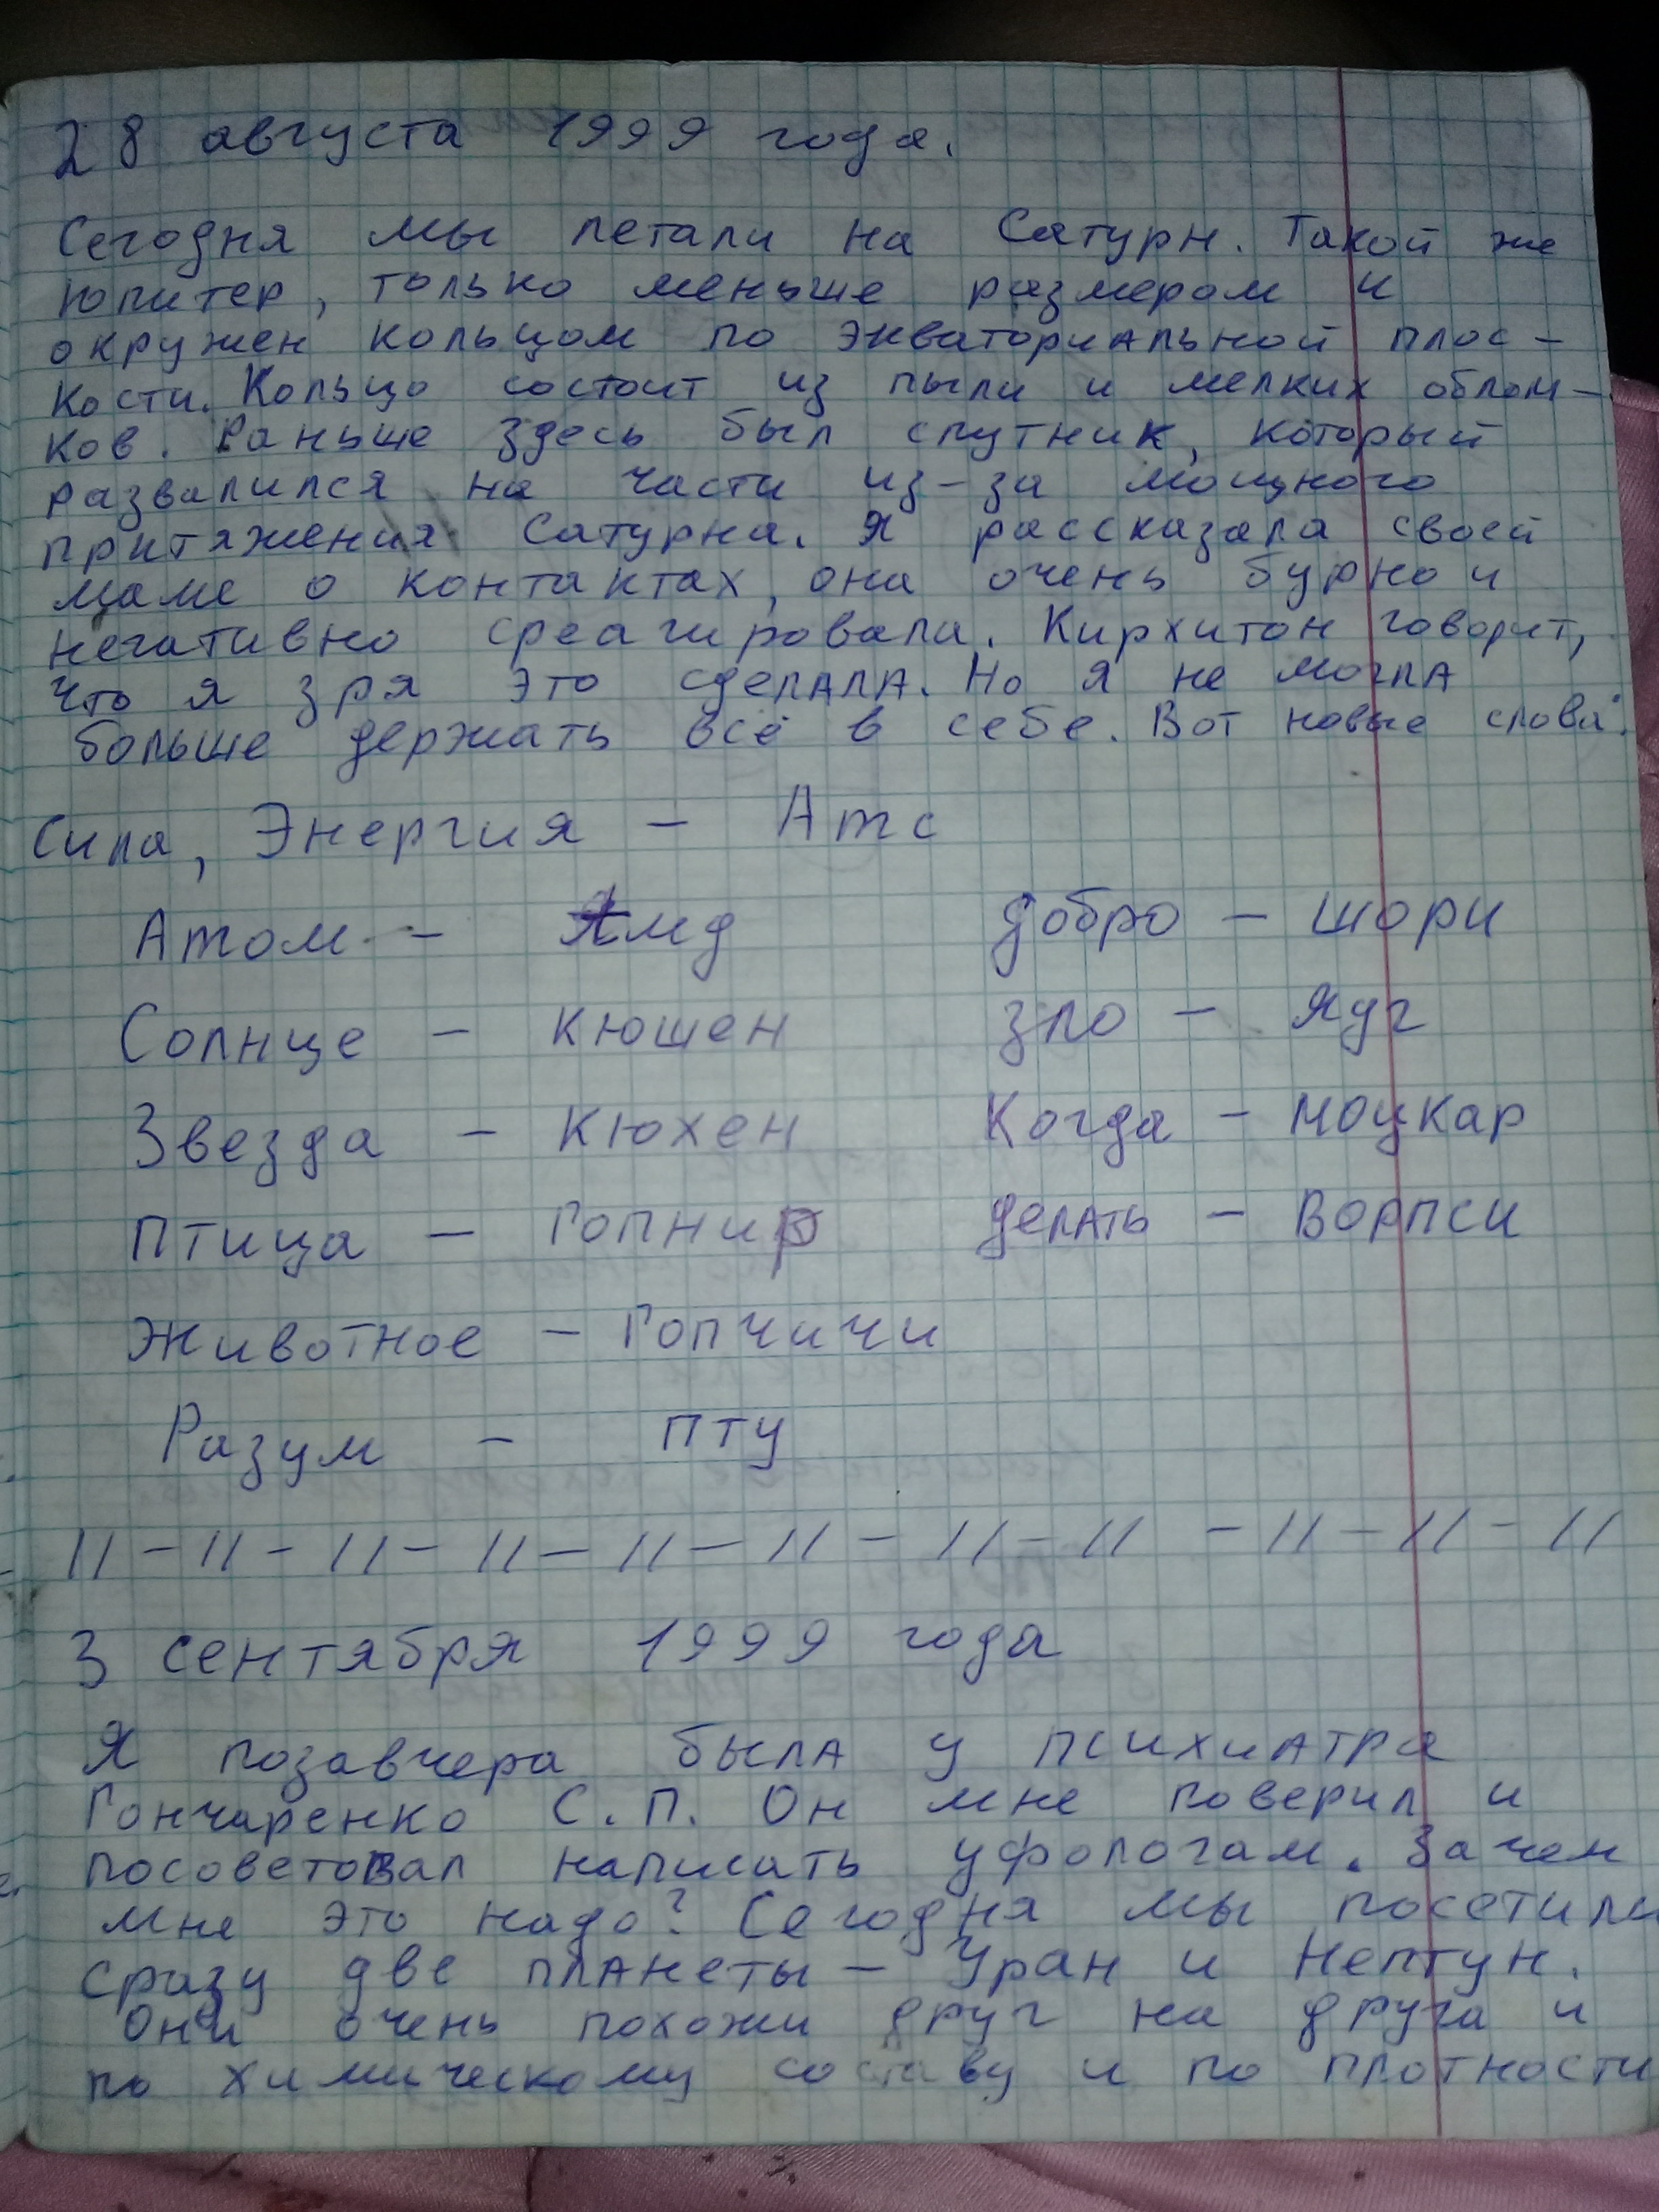 28 августа 1999 года.
Сегодня мы летали на Сатурн. Такой же
Юпитер, только меньше размером и
окружен кольцом по экваториальной плос-
кости. Кольцо состоит из пыли и мелких облом-
ков. Раньше здесь был спутник, который
развалился на части из-за мощного
притяжения Сатурна. Я рассказала своей
маме о контактах, она очень бурно и
негативно среагировала. Кирхитон говорит,
что я зря это сделала. Но я не могла
больше держать всё в себе. Вот новые слова:
Сила, Энергия - Атс
Атом - Ямд добро - шори
Солнце - кюшен зло - яуг
Звезда - кюхен Когда - моцкар
птица - гопнир делать - ворпси
животное - гопчичи
Разум - пту
11 - 11 - 11 - 11 - 11 - 11 - 11 - 11 - 11 - 11 - 11
3 сентября 1999 года
Я позавчера была у психиатра
Гончаренко С.П. Он мне поверил и
посоветовал написать уфологам. Зачем
мне это надо? Сегодня мы посетили
сразу две планеты - Уран и Нептун.
Они очень похожи друг на друга и
по химическому составу и по плотности